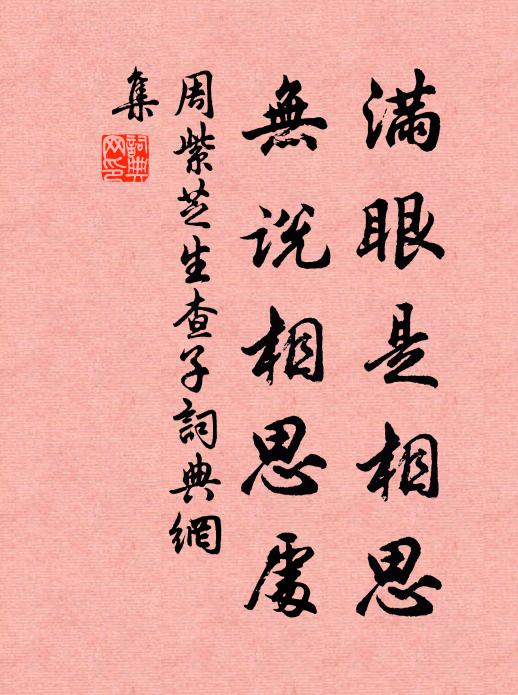 滿眼是相思
無說相思處
周紫芝生查子詞典網
集
詞典
网印